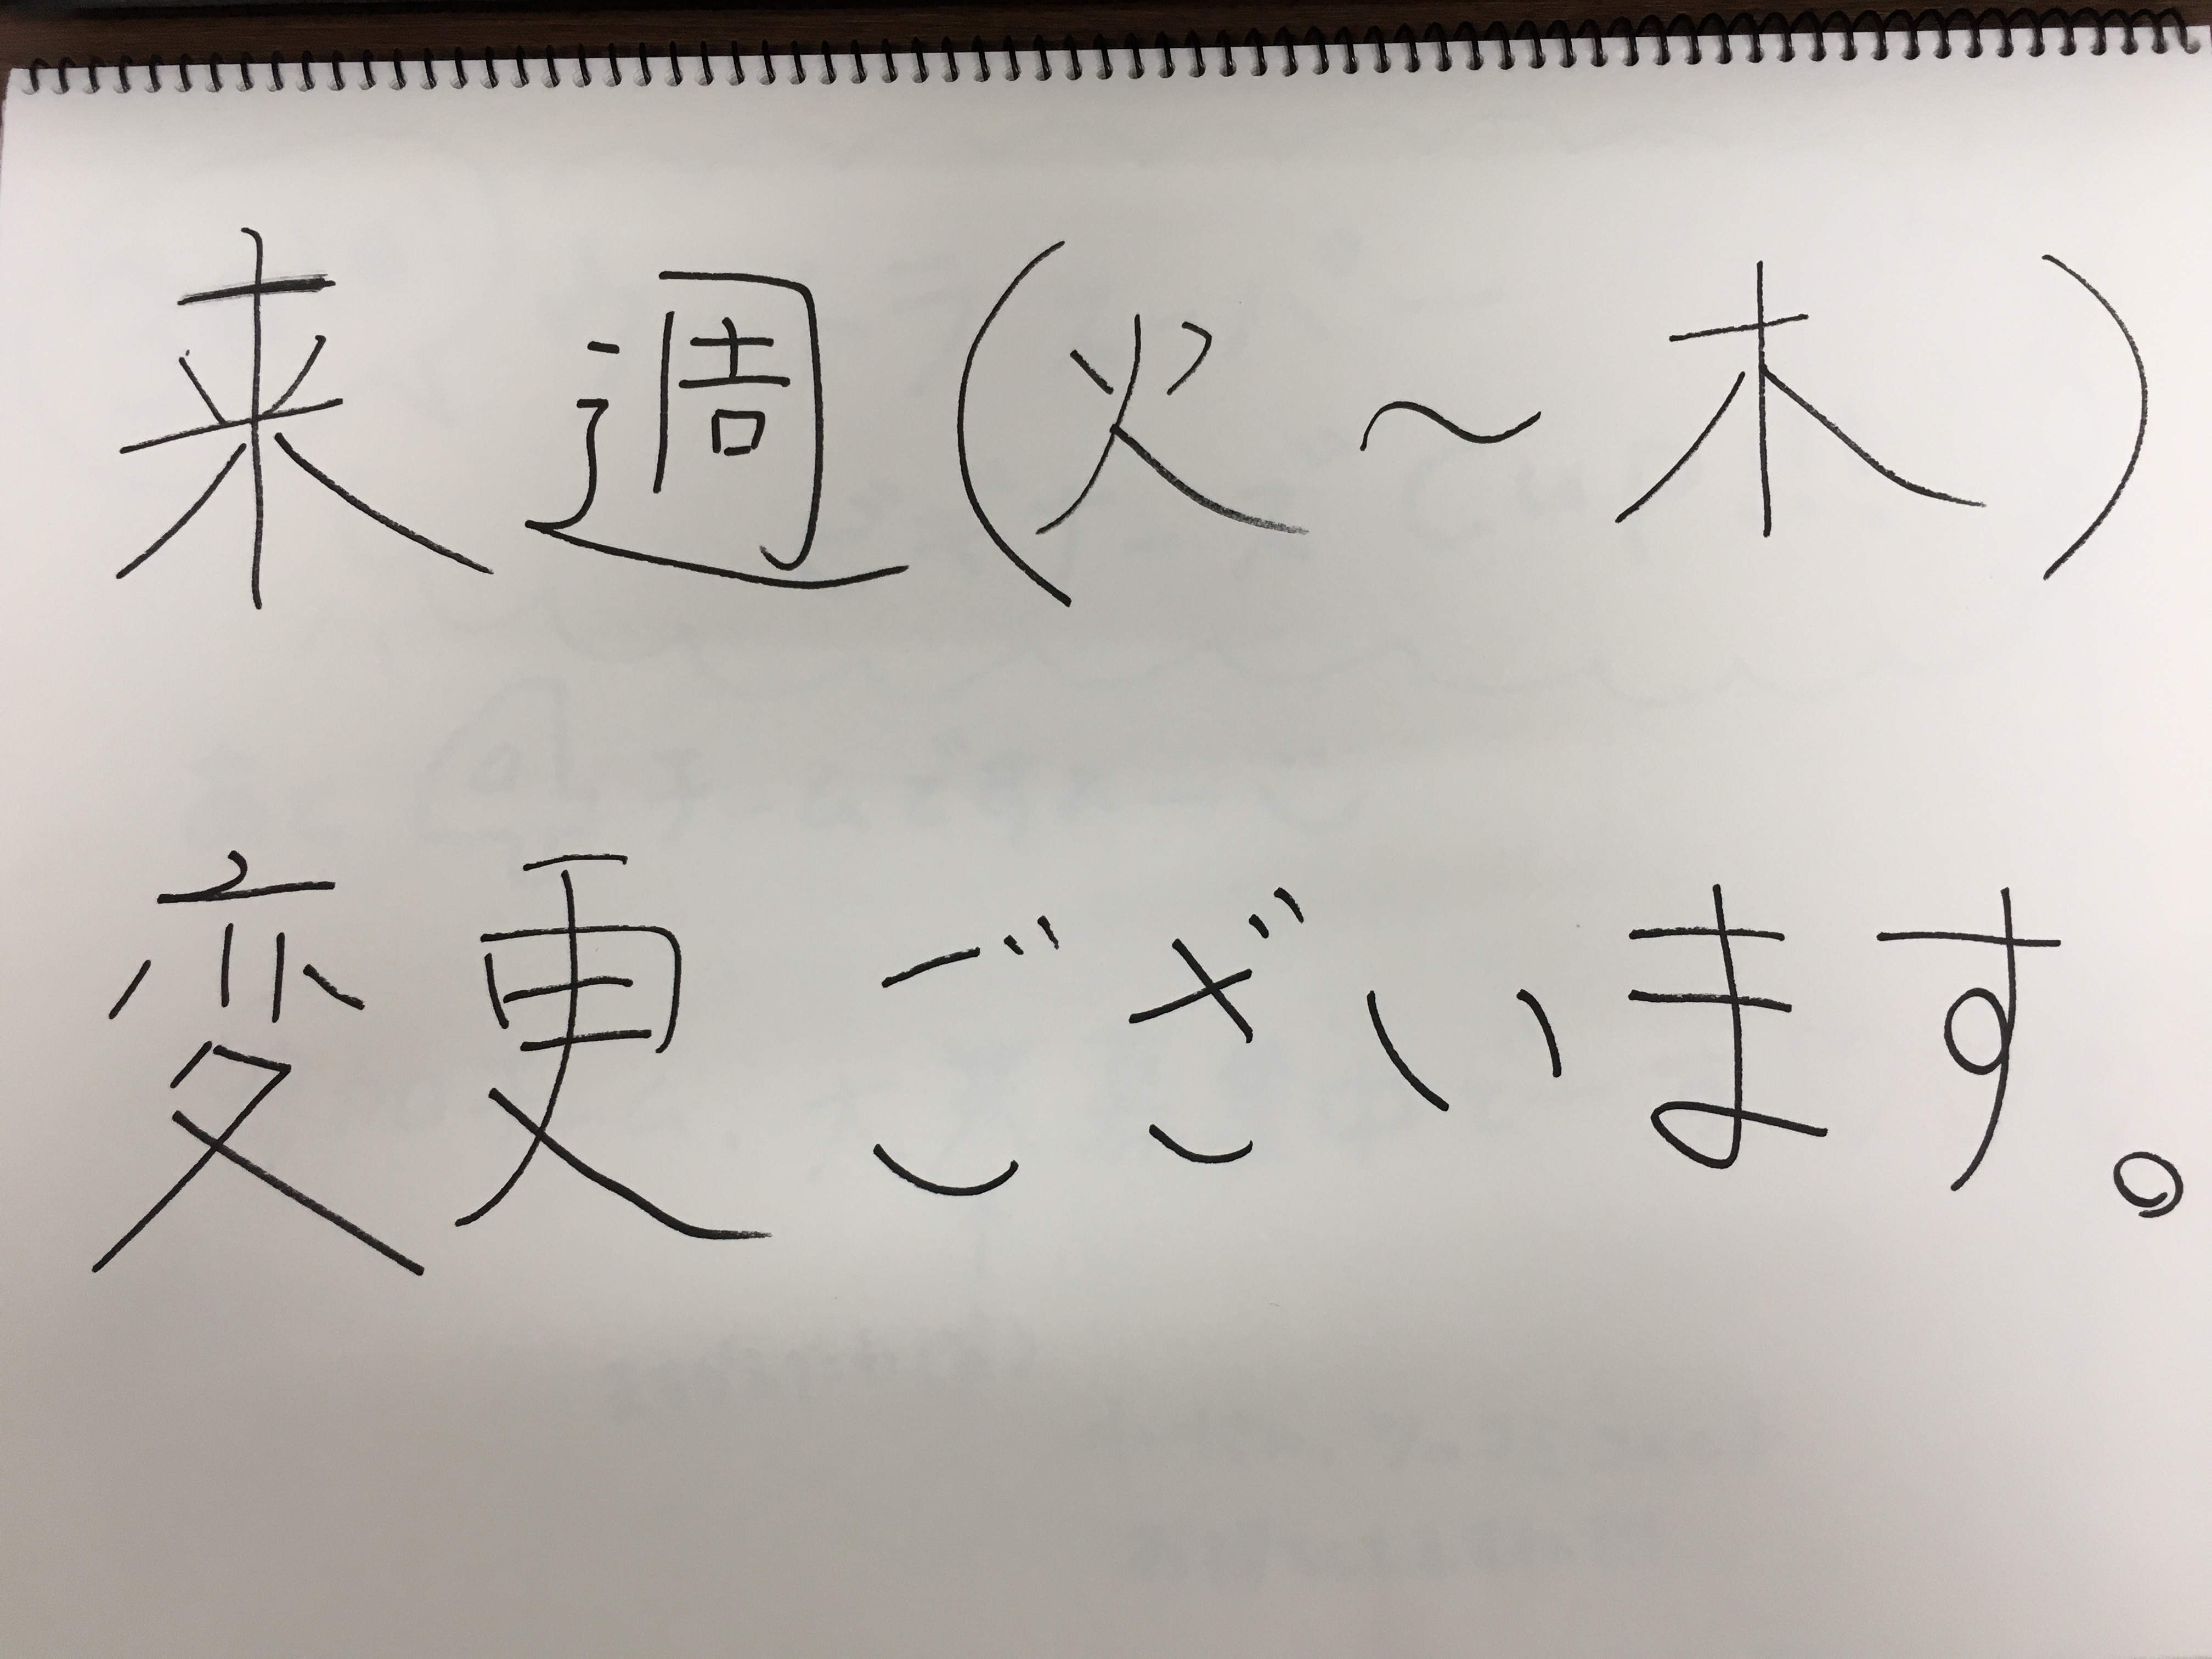 来週(火～木)
変更ございます。